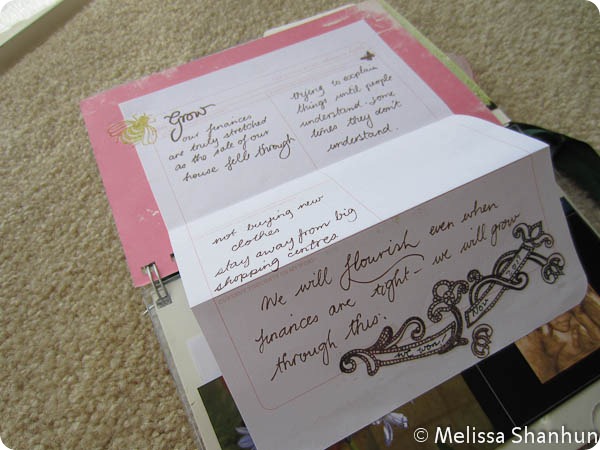 Grow
our finances
are truly stretched
as the sale of our
house fell through
trying to explain
things until people
understand. Some
times they don't
understand.
not buying new
clothes
stay away from big
shopping centres
We will flourish even when
finances are tight - we will grow
through this.
© Melissa Shanhun